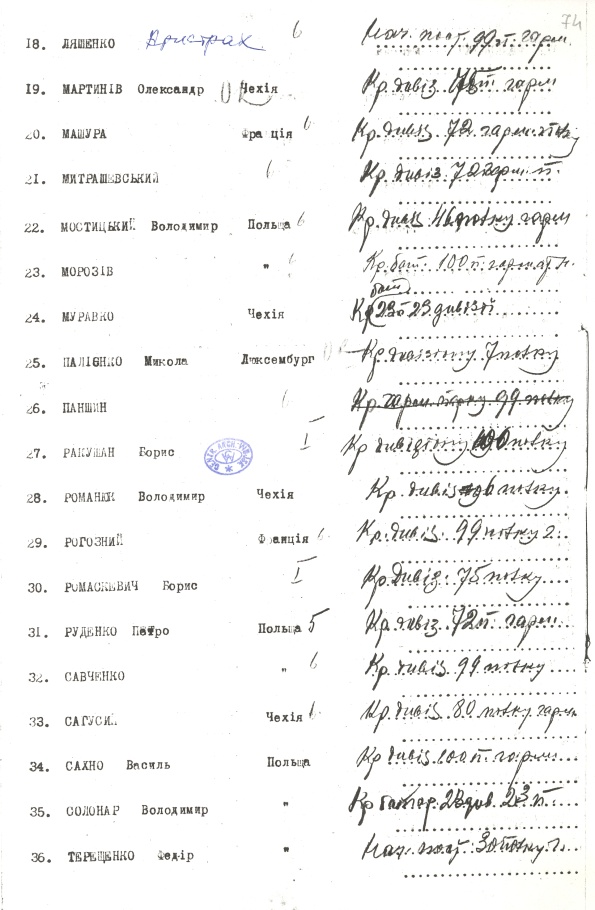 74
18. ЛЯШЕНКО 6 Нач. 99 п. гарм.
19. МАРТИНІВ Олександр Чехія Кр. дивіз. 75 п. гарм
20. МАШУРА Франція 6 Кр. дивіз. 72 гарм.
21. МИТРАШЕВСЬКИЙ 6 Кр. дивіз. 72 гарм. п.
22. МОСТИЦЬКИЙ Володимир Польща 6 Кр. гарм
23. МОРОЗІВ " 6 Кр. бат. 100 п. гарм.
бат
24. МУРАВКО Чехія Кр. 23 дивізії
25. ПАЛІЄНКО Микола Люксембург Кр. дивізіону 7 полку
26. ПАНШИН 6 Кр. гарм. 99 полку
27. РАКУШАН Борис I Кр дивізіону 100 полку
28. РОМАНЕК Володимир Чехія Кр. дивіз 6 полку.
29. РОГОЗНИЙ Франція 6 Кр. дивіз. 99 полку г.
30. РОМАСКЕВИЧ Борис I Кр дивіз. 75 полку.
31. РУДЕНКО Петро Польща 5 Кр. дивіз. 72 п. гарм.
32. САВЧЕНКО " 6 Кр. дивіз 99 полку
33. САГУСИЙ Чехія 6 Кр. дивіз. 80 полку гарм
34. САХНО Василь Польща Кр дивіз. 100 п. гарм.
35. СОЛОНАР Володимир " Кр 23 п.
36. ТЕРЕЩЕНКО Федір " Нач. 30 полку г.